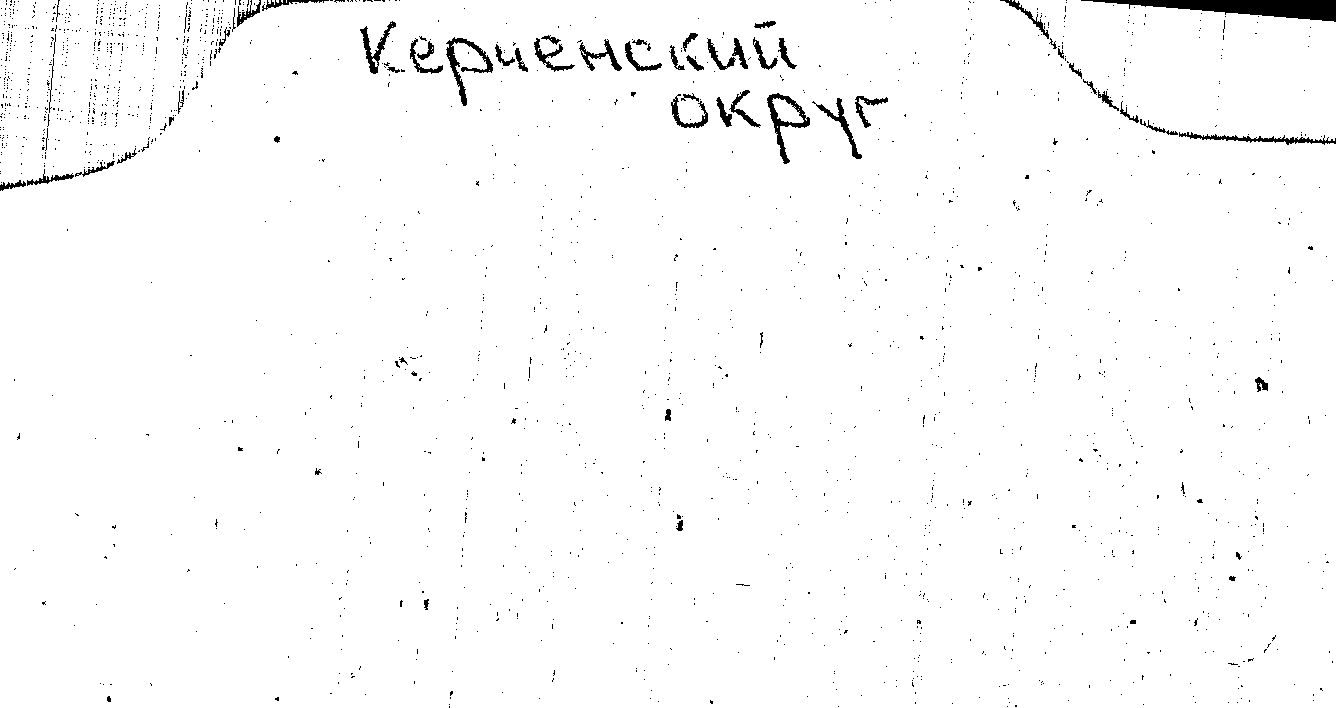 Керченский
округ